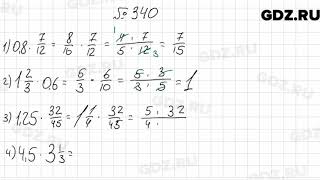 GDZ.RU
№ 340
1) 0,8 · 7/12 = 8/10 · 7/12 = 4 · 7 / 5 · 12 3 = 7/15
2) 1 2/3 · 0,6 = 5/3 · 6/10 = 5 · 3 / 5 · 3 = 1
3) 1,25 · 32/45 = 1 1/4 · 32/45 = 5 · 32 / 4 ·
4) 4,5 · 3 1/3 =
GDZ.RU